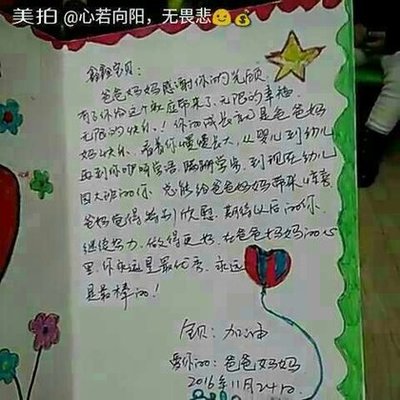 美拍 @心若向阳，无畏悲
鑫鑫宝贝：
爸爸妈妈感谢你的光顾
有了你给这个家庭带来了无限的幸福
无限的快乐！你的成长就是爸爸妈
妈的快乐，看着你慢慢长大，从婴儿到幼儿
再到你咿呀学语，蹒跚学步，到现在幼儿
园大班的你，总能给爸爸妈妈带来惊喜
爸妈觉得特别欣慰，期待以后的你
继续努力，做得更好，在爸爸妈妈的心
里，你永远是最优秀，永远
是最棒的！
宝贝：加油
爱你的：爸爸妈妈
2016年11月24日